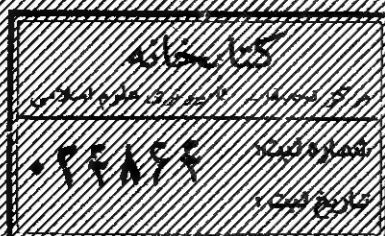 کتابخانه
مرکز تحقیقات کامپیوتری علوم اسلامی
شماره ثبت: ۰۲۴۸۶۴
تاریخ ثبت: